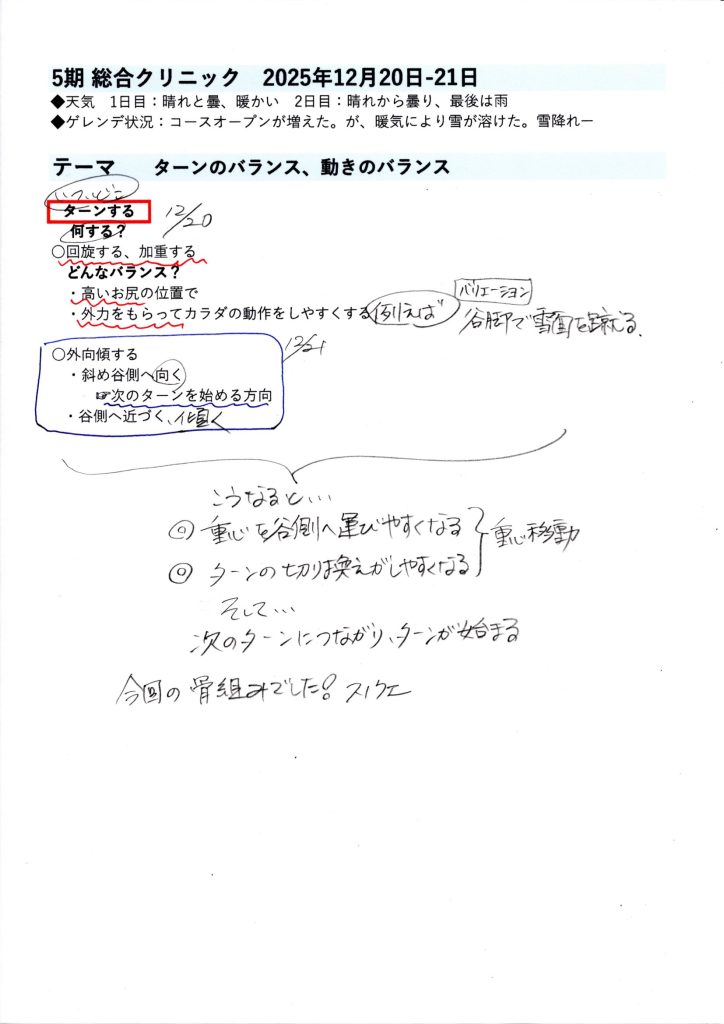 5期 総合クリニック　2025年12月20日-21日
◆天気　1日目：晴れと曇、暖かい　2日目：晴れから曇り、最後は雨
◆ゲレンデ状況：コースオープンが増えた。が、暖気により雪が溶けた。雪降れー
テーマ　ターンのバランス、動きのバランス
ターンする 12/20
何する？
○回旋する、加重する
どんなバランス？
・高いお尻の位置で バリエーション
・外力をもらってカラダの動作をしやすくする 例えば 谷脚で雪面を蹴る、
○外向傾する 12/21
・斜め谷側へ向く
☞次のターンを始める方向
・谷側へ近づく、傾く
こうなると…
◎ 重心を谷側へ運びやすくなる
◎ ターンの切り換えがしやすくなる
重心移動
そして…
次のターンにつながり、ターンが始まる
今回の骨組みでした！スノウエ